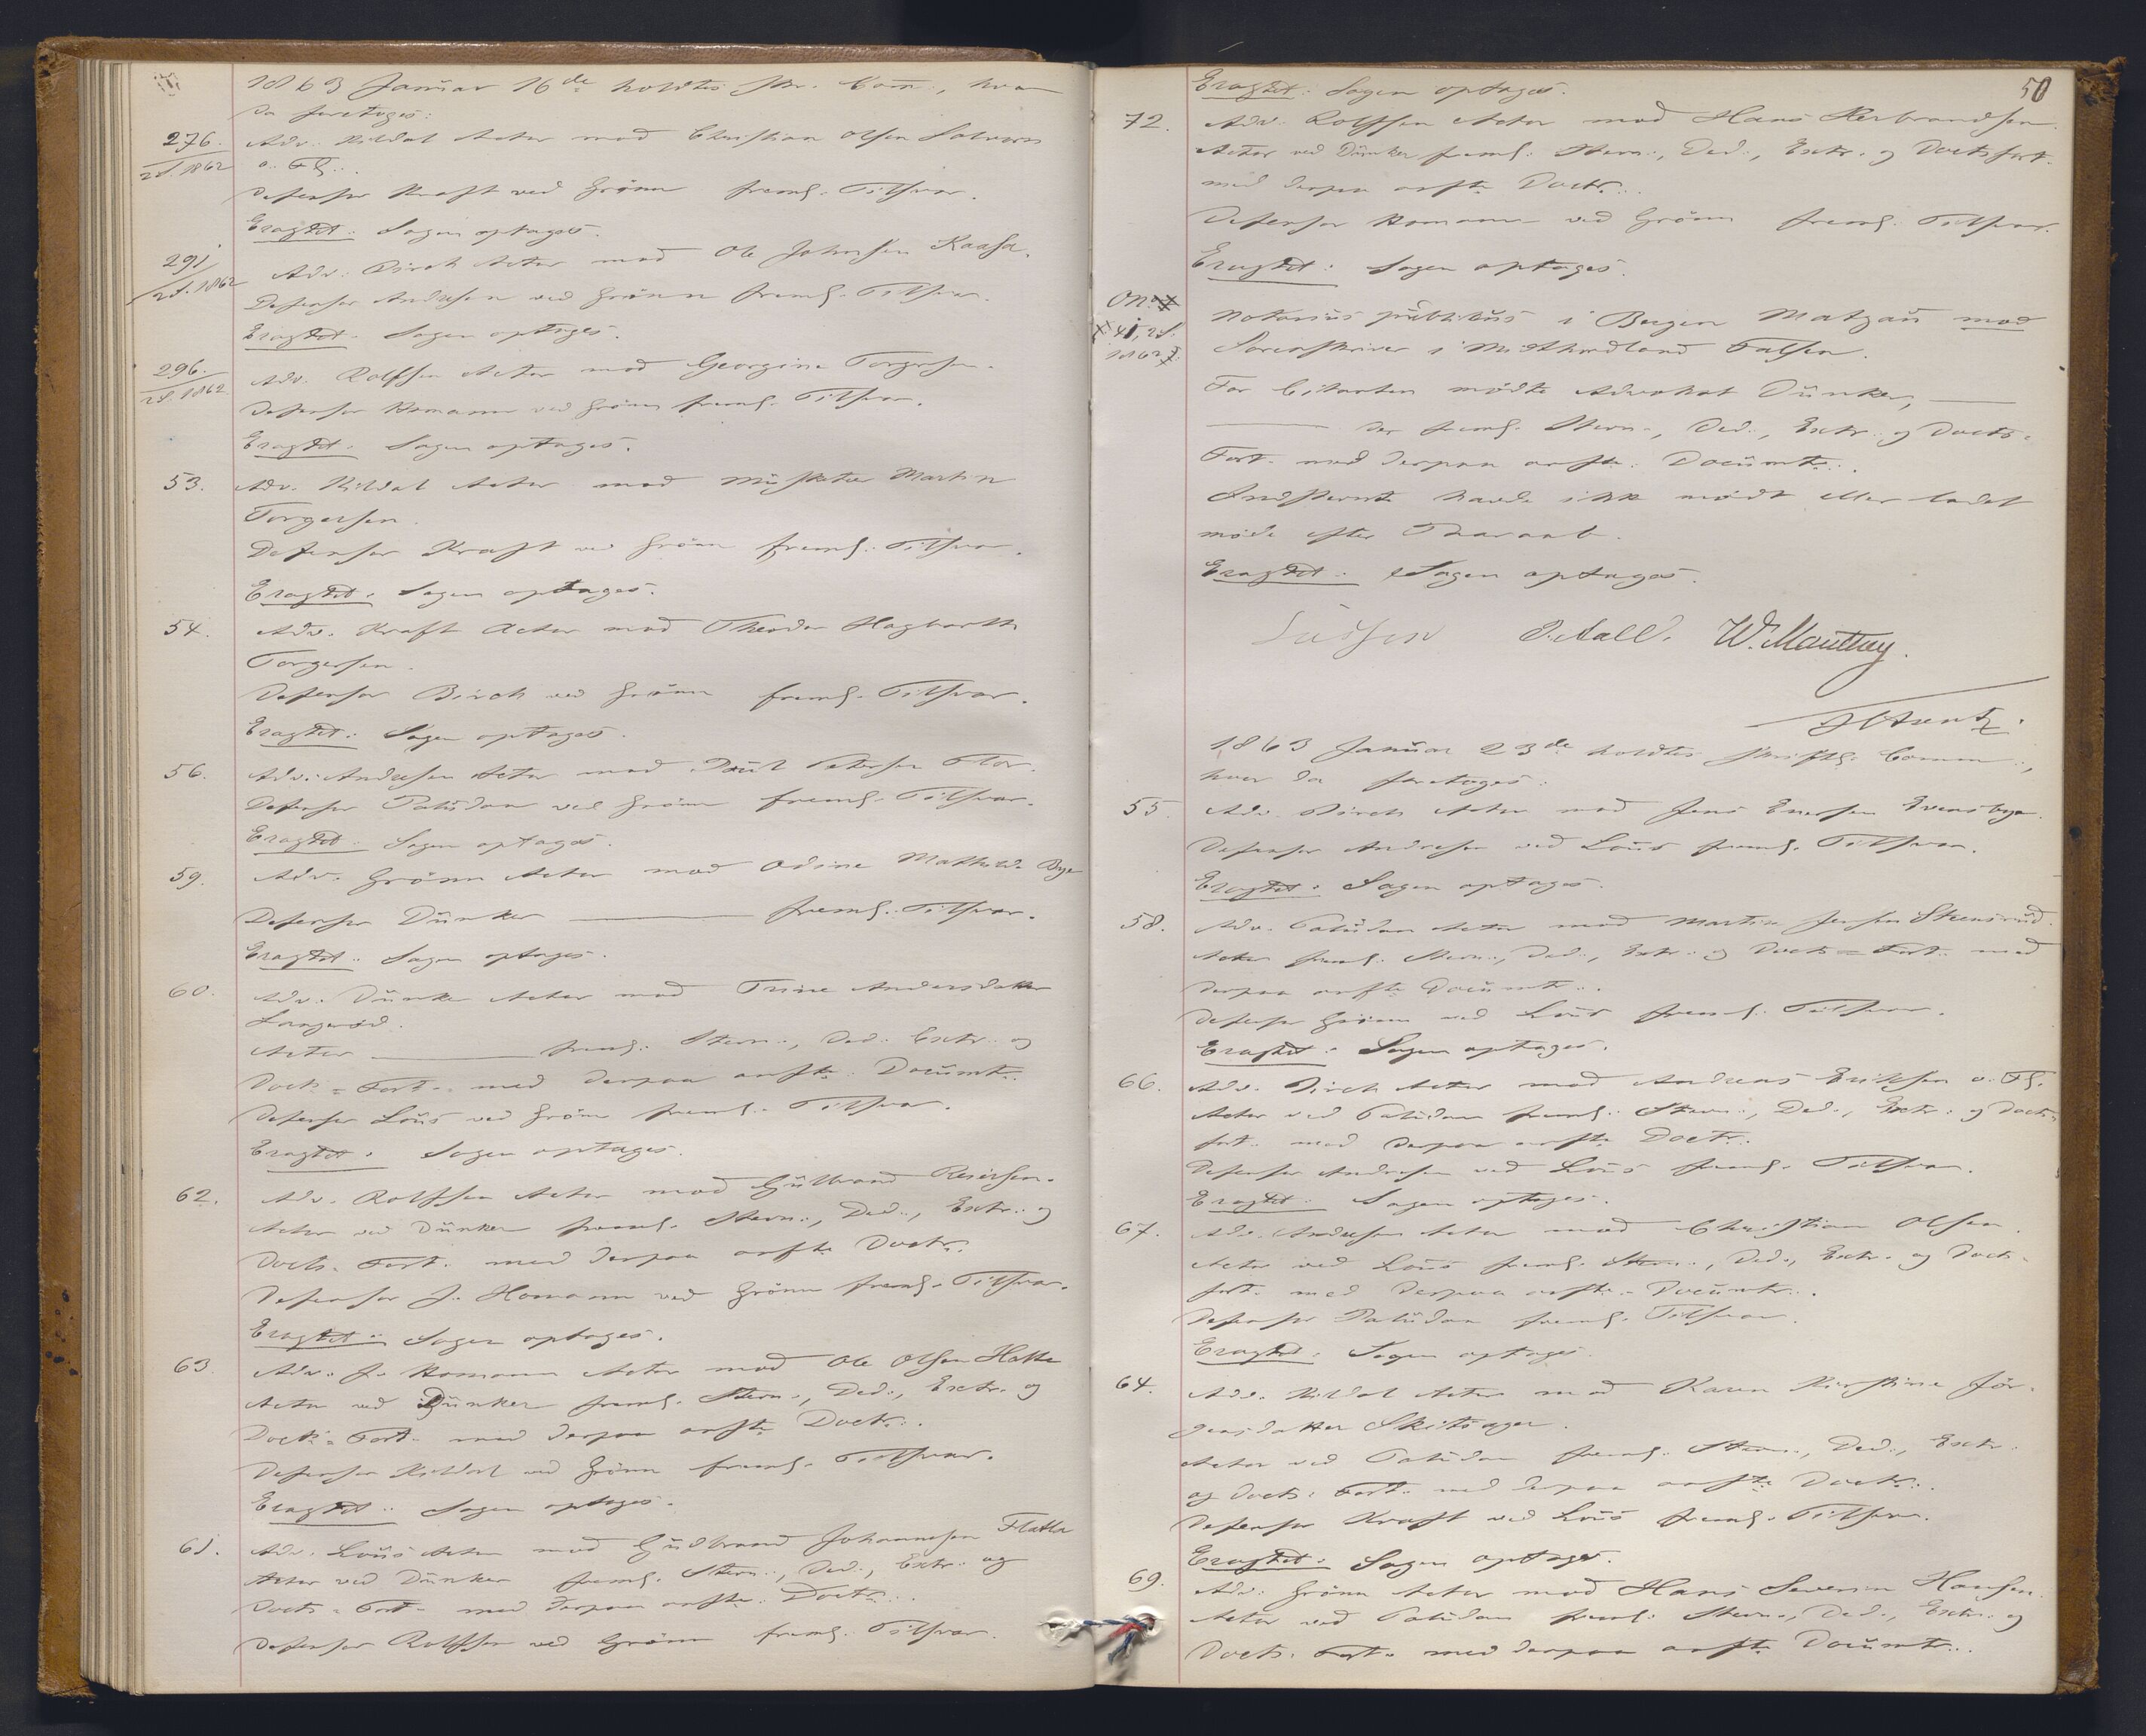 1863 Januar 16de holdtes skr. Com., hvor
da foretoges:
276.
2d. 1862
Adv. Kildal Actor mod Christian Olsen
o. Fl.
Defensor Kraft ved Grönn freml. Tilsvar.
Eragtet: Sagen optages.
291
2d. 1862
Adv. Birch Actor mod Ole Johnsen Kaasa.
Defensor Andresen ved Grönn freml. Tilsvar.
Eragtet: Sagen optages.
296.
2d. 1862
Adv. Rolfsen Actor mod Georgine Torgersen.
Defensor Homann ved Grönn freml. Tilsvar.
Eragtet: Sagen optages.
53.
Adv. Kildal Actor mod Musketer Martin
Torgersen.
Defensor Kraft ved Grönn freml. Tilsvar.
Eragtet: Sagen optages.
54.
Adv. Kraft Actor mod Theodor Hagbarth
Torgersen.
Defensor Birch ved Grönn freml. Tilsvar.
Eragtet: Sagen optages.
56.
Adv. Andresen Actor mod Poul Petersen Flor.
Defensor Paludan ved Grönn freml. Tilsvar.
Eragtet: Sagen optages.
59.
Adv. Grönn Actor mod Odine Mathilde Bye
Defensor Dunker freml. Tilsvar.
Eragtet: Sagen optages.
60.
Adv. Dunker Actor mod Trine Andersdatter
Langeröd.
Actor freml. Stevn., Ded., Extr. og
Docts-Fort. med derpaa anfte. Documtr.
Defensor Lous ved Grönn freml. Tilsvar.
Eragtet: Sagen optages.
62.
Adv. Rolfsen Actor mod Gulbrand Reiersen.
Actor ved Dunker freml. Stevn., Ded., Extr. og
Docts-Fort. med derpaa anfte Doctr.
Defensor J. Homann ved Grönn freml. Tilsvar.
Eragtet: Sagen optages.
63.
Adv. J. Homann Actor mod Ole Olsen
Actor ved Dunker freml. Stevn., Ded., Extr. og
Docts-Fort. med derpaa anfte Doctr.
Defensor Kildal ved Grönn freml. Tilsvar.
Eragtet: Sagen optages.
61.
Adv. Lous Actor mod Gudbrand Johannesen Flatla
Actor ved Dunker freml. Stevn., Ded., Extr. og
Docts-Fort. med derpaa anfte. Doctr.
Defensor Rolfsen ved Grönn freml. Tilsvar.
50
Eragtet: Sagen optages.
72.
Adv. Rolfsen Actor mod Hans Herbrandsen.
Actor ved Dunker freml. Stevn., Ded., Extr. og Doctsfort.
med derpaa anfte Doctr.
Defensor Homann ved Grönn freml. Tilsvar.
Eragtet: Sagen optages.
41, 2d.
1862
Notarius publicus i Bergen Matzau mod
Sorenskriver i Midthordland Falsen.
For Citanten mödte Advokat Dunker,
der freml. Stevn., Ded., Extr. og Docts-
Fort. med derpaa anfte. Documtr.
Indstevnte havde ikke mödt eller ladet
möde efter Paaraab.
Eragtet: Sagen optages.
Lasson N. Aall. W. Manthey.
1863 Januar 23de holdtes skriftl. Comm.,
hvor da foretoges:
55.
Adv. Birch Actor mod Jens Enersen Evensbye.
Defensor Andresen ved Lous freml. Tilsvar.
Eragtet: Sagen optages.
58.
Adv. Paludan Actor mod Martin Jensen Steensrud.
Actor freml. Stevn., Ded., Extr. og Docts-Fort. med
derpaa anfte Documtr.
Defensor Grönn ved Lous freml. Tilsvar.
Eragtet: Sagen optages.
66.
Adv. Birch Actor mod Andreas Eriksen o. Fl.
Actor ved Paludan freml. Stevn., Ded., Extr. og Docts-
fort. med derpaa anfte Doctr.
Defensor Andresen ved Lous freml. Tilsvar.
Eragtet: Sagen optages.
67.
Adv. Andresen Actor mod Christian Olsen.
Actor ved Lous freml. Stevn., Ded., Extr. og Docts-
fort. med derpaa anfte. Documtr.
Defensor Paludan freml. Tilsvar.
Eragtet: Sagen optages.
64.
Adv. Kildal Actor mod Karen Kirstine Jör-
gensdatter Skitsager.
Actor ved Paludan freml. Stevn., Ded., Extr.
og Docts. Fort. med derpaa anfte Doctr.
Defensor Kraft ved Lous freml. Tilsvar.
Eragtet: Sagen optages.
69.
Adv. Grönn Actor mod Hans Severin Hansen.
Actor ved Paludan freml. Stevn., Ded., Extr. og
Docts. Fort. med derpaa anfte Documtr.